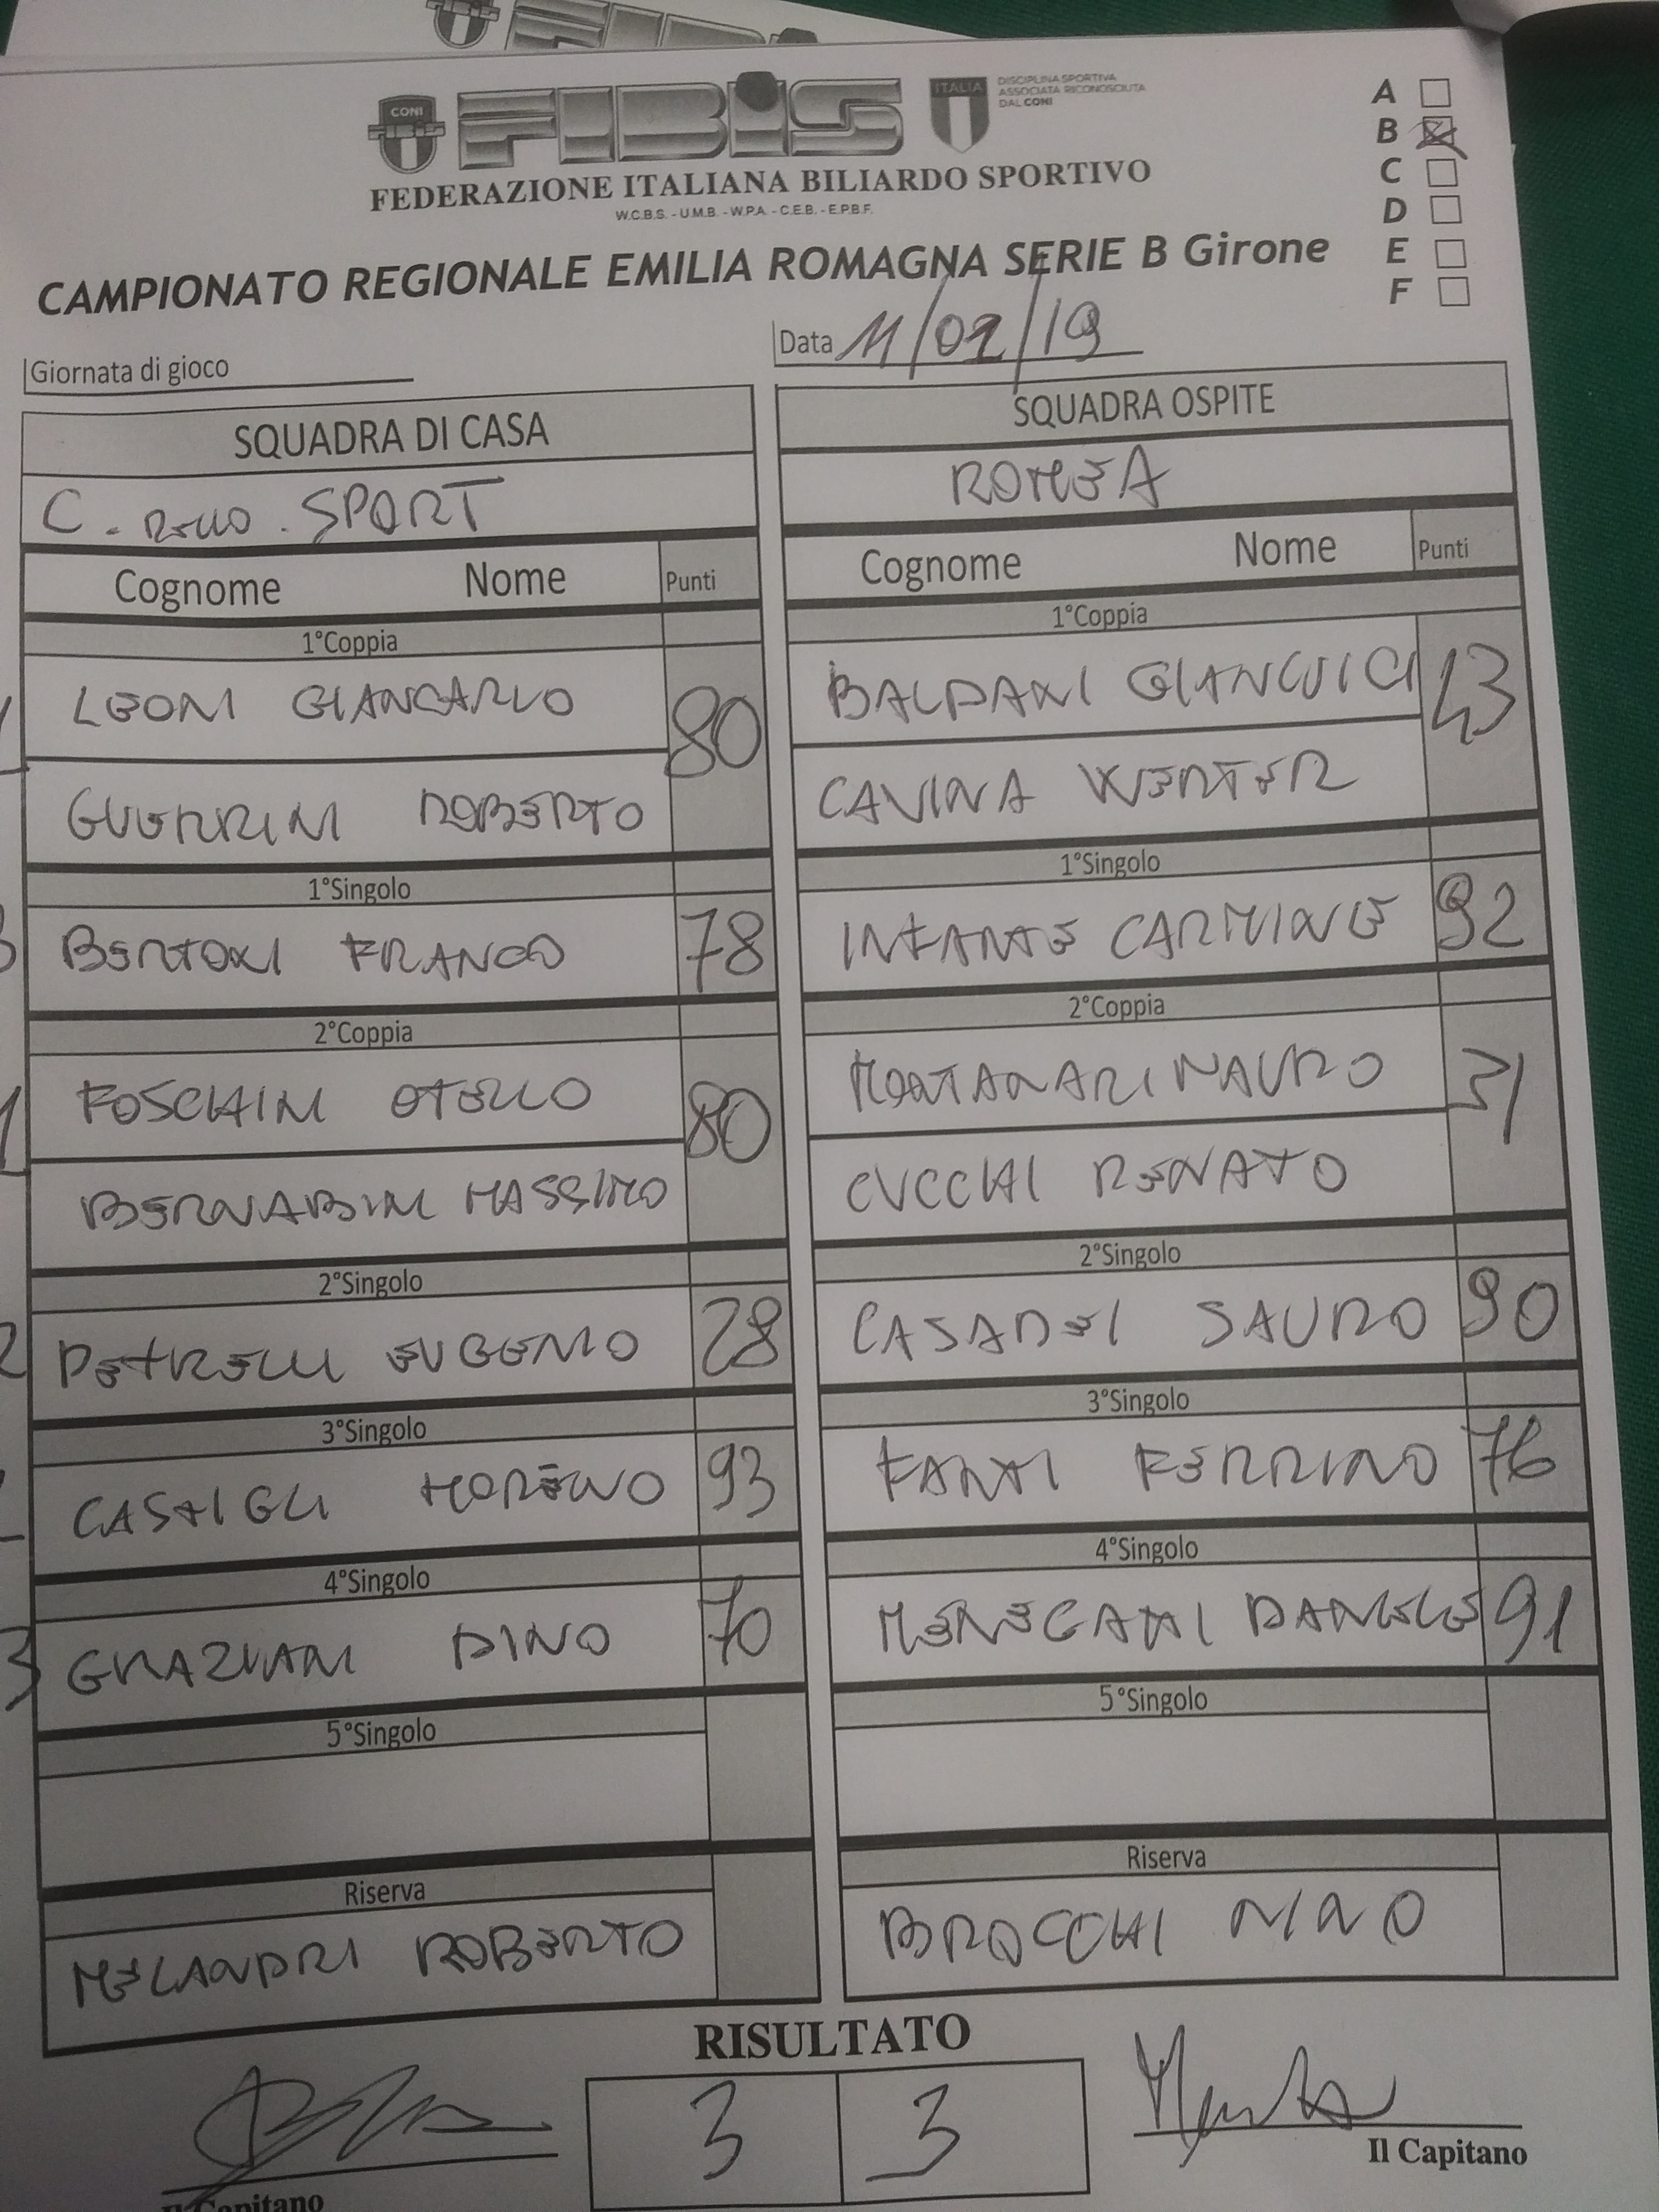 CONI
FIBiS
ITALIA
DISCIPLINA SPORTIVA
ASSOCIATA RICONOSCIUTA
DAL CONI
FEDERAZIONE ITALIANA BILIARDO SPORTIVO
W.C.B.S. - U.M.B. - W.P.A. - C.E.B. - E.P.B.F.
A
B
C
D
E
F
CAMPIONATO REGIONALE EMILIA ROMAGNA SERIE B Girone
Giornata di gioco
Data 11/02/19
SQUADRA DI CASA
C. SPORT
Cognome Nome Punti
1°Coppia
LEONI GIANCARLO 80
GUERRINI ROBERTO
1°Singolo
BERTONI FRANCO 78
2°Coppia
FOSCHINI OTELLO 80
BERNABINI MASSIMO
2°Singolo
PETRELLI EUGENIO 28
3°Singolo
CASTIGLI MORENO 93
4°Singolo
GRAZIANI DINO 70
5°Singolo
Riserva
MELANDRI ROBERTO
SQUADRA OSPITE
ROMEA
Cognome Nome Punti
1°Coppia
BALDANI GIANLUIGI 43
CAVINA WERTER
1°Singolo
INFANTE CARMINE 92
2°Coppia
MONTANARI MAURO 31
CUCCHI RENATO
2°Singolo
CASADEI SAURO 90
3°Singolo
FANTI FERRINO 76
4°Singolo
MENEGATTI DANIELE 91
5°Singolo
Riserva
BROCCHI NINO
RISULTATO
3 3
Il Capitano
Il Capitano